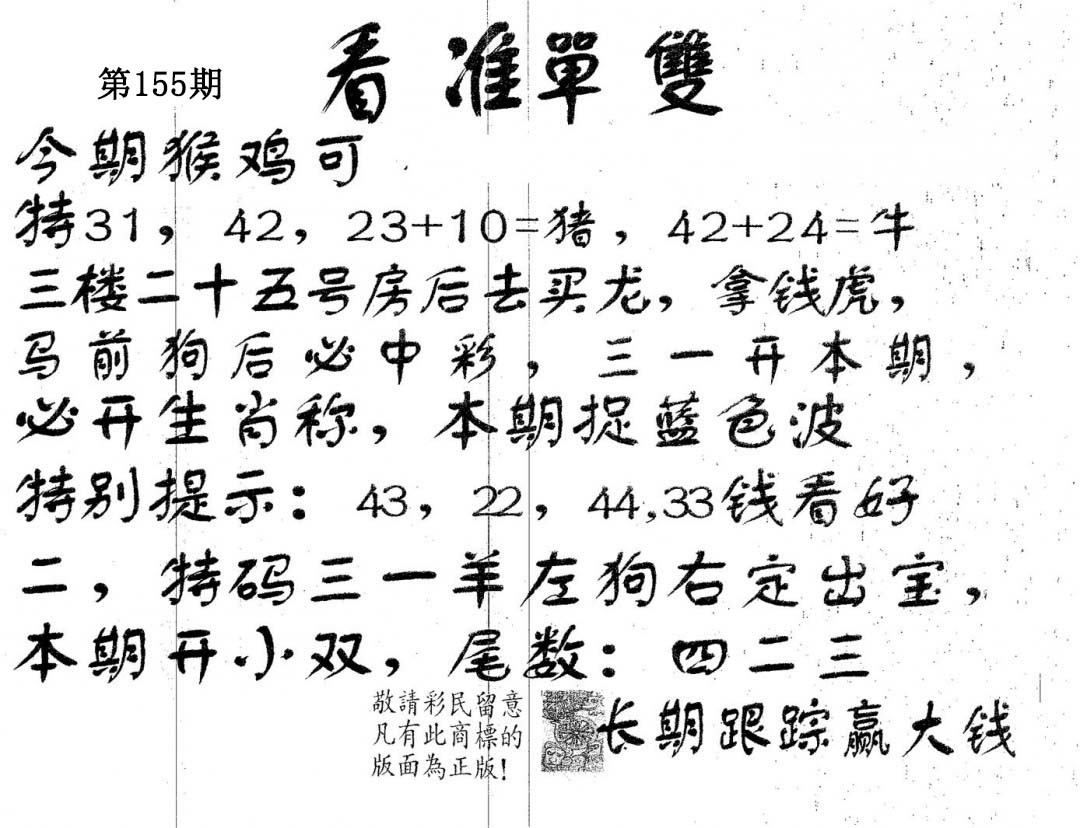 看准單雙
第155期
今期猴鸡可
特31，42，23+10=猪，42+24=牛
三楼二十五号房后去买龙，拿钱虎，
马前狗后必中彩，三一开本期，
必开生肖称，本期捉蓝色波
特别提示：43，22，44,33钱看好
二，特码三一羊左狗右定出宝，
本期开小双，尾数：四二三
敬請彩民留意
凡有此商標的
版面為正版！
长期跟踪赢大钱